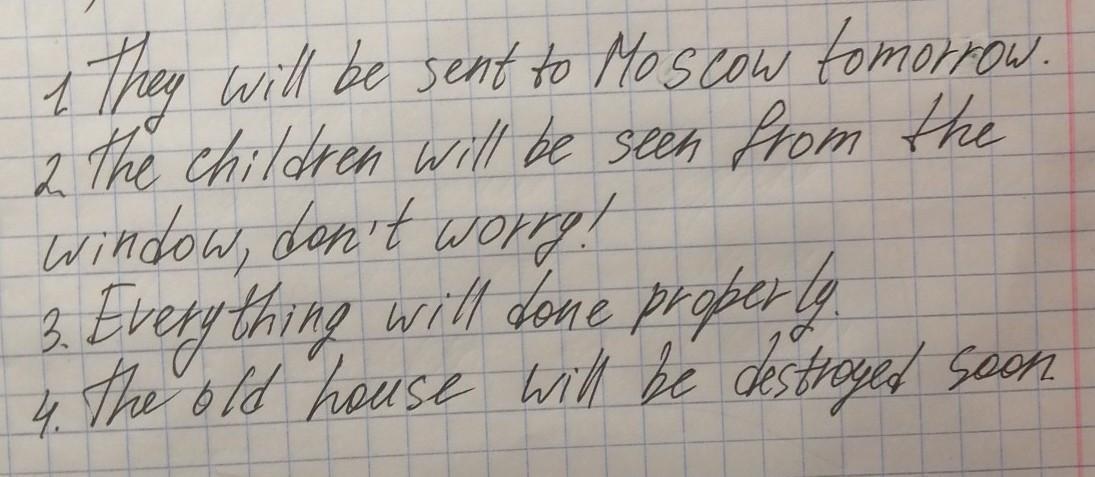 1 They will be sent to Moscow tomorrow.
2. The children will be seen from the
window, don't worry!
3. Everything will done properly.
4. The old house will be destroyed soon